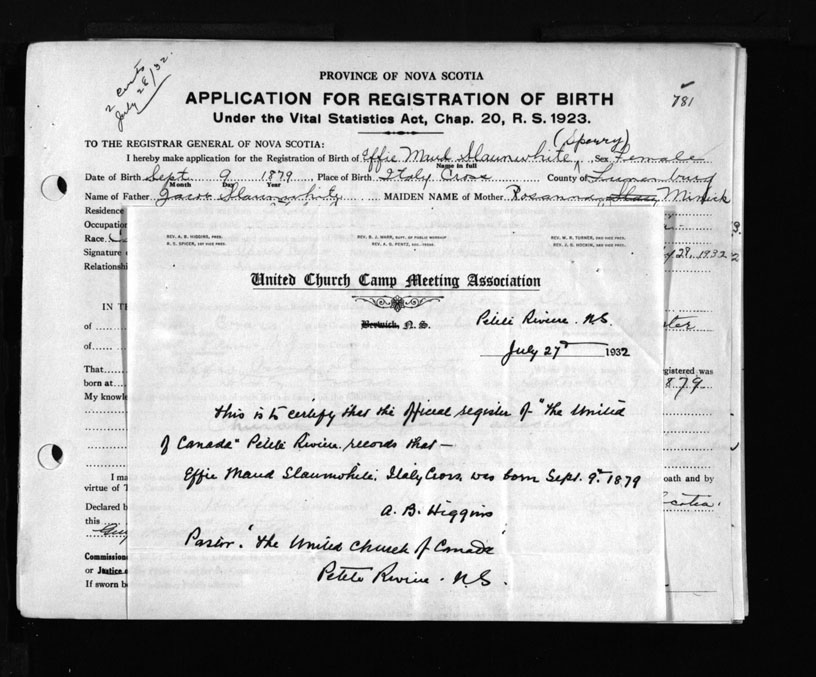 2 certs
July 28/32.
PROVINCE OF NOVA SCOTIA
APPLICATION FOR REGISTRATION OF BIRTH
781
Under the Vital Statistics Act, Chap. 20, R. S. 1923.
TO THE REGISTRAR GENERAL OF NOVA SCOTIA:
I hereby make application for the Registration of Birth of Effie Maud Slaunwhite, Sex Female
Name in full
Date of Birth Sept 9 1879 Place of Birth Italy Cross County of Lunenburg
Month Day Year
Name of Father Jacob Slaunwhite MAIDEN NAME of Mother Rosanna
Residence
Occupation
Race
Signature 28, 1932
Relationsh
REV. A. B. HIGGINS, PRES.
R. S. SPICER, 1ST VICE PRES.
REV. A. G. PENTZ, SEC.-TREAS.
REV. W. R. TURNER, 2ND VICE PRES.
REV. J. G. HOCKIN, 3RD VICE PRES.
United Church Camp Meeting Association
Berwick, N. S.
Petite Riviere. N.S.
July 27th 1932
IN TH
of
of
That egistered was
born at 1879
My knowle
This is to certify that the official register of "The United
of Canada" Petite Riviere records that —
Effie Maud Slaunwhite, Italy Cross, was born Sept. 9th 1879
A. B. Higgins
Pastor. "The United Church of Canada"
Petite Riviere. N.S.
I ma oath and by
virtue of T
Declared b
this
Commission
or Justice
If sworn b